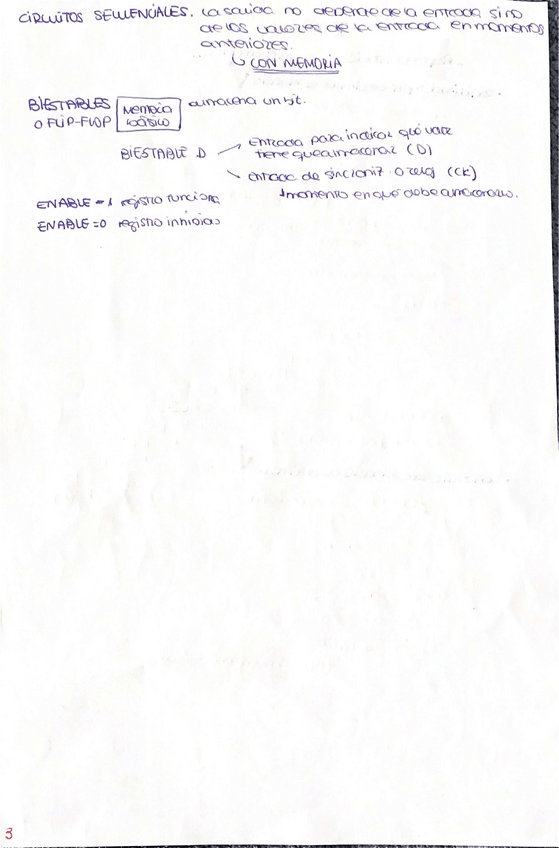 CIRCUITOS SECUENCIALES. La salida no depende de la entrada sino
de los valores de la entrada en momentos
anteriores.
↳ CON MEMORIA
BIESTABLES
O FLIP-FLOP
Memoria
básico
almacena un bit.
BIESTABLE D
Entrada para indicar qué valor
tiene que almacenar (D)
entrada de sincroniz. o reloj (CK)
momento en que debe almacenarlo.
ENABLE = 1 registro funciona
ENABLE = 0 registro inhibido
3